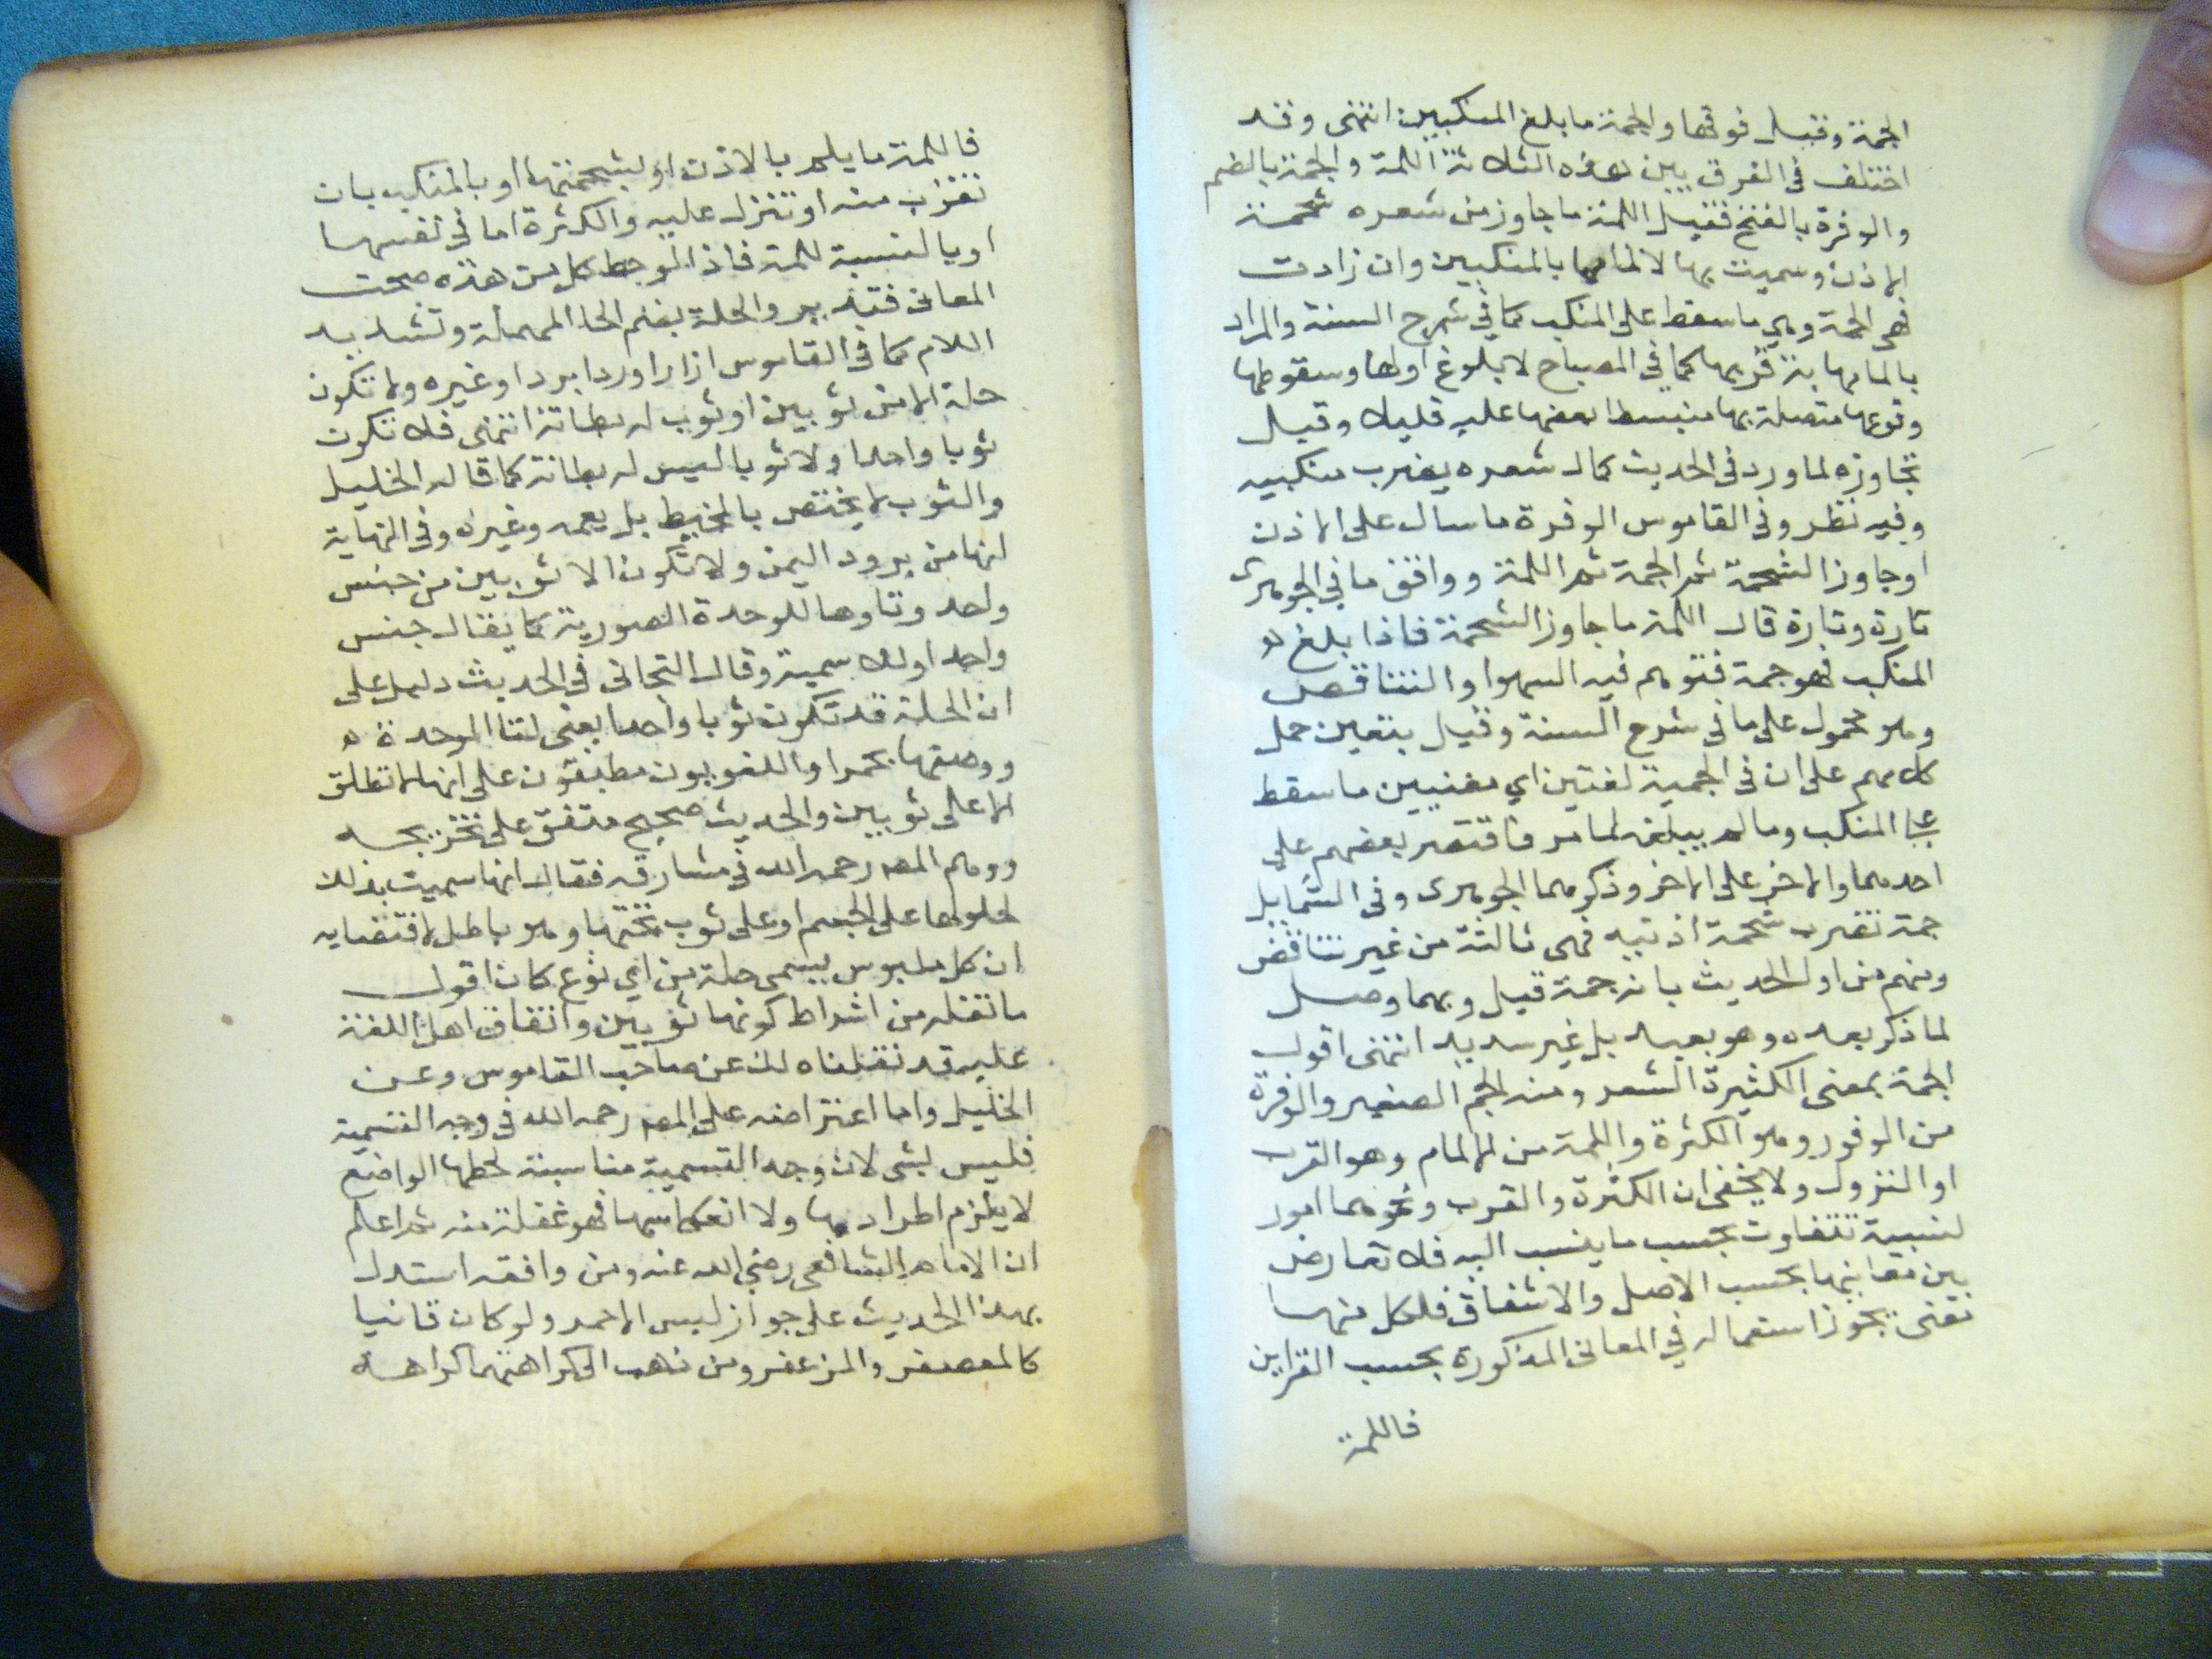 الجمة وقيل فوقها والجمة ما بلغ المنكبين انتهى وقد
اختلف في الفرق بين هذه الثلاثة اللمة والجمة بالضم
والوفرة بالفتح فقيل اللمة ما جاوز من شعره شحمة
الاذن وسميت بها لالمامها بالمنكبين وان زادت
فهى الجمة وهي ما سقط على المنكب كما في شرح السنة والمراد
بالمامها به قربها كما في المصباح لا بلوغ اولها وسقوطها
وقوعها متصلة بها منبسط بعضها عليه قليلا وقيل
تجاوزه لما ورد في الحديث كما لـ شعره يضرب منكبيه
وفيه نظر وفي القاموس الوفرة ما سال على الاذن
اوجاوز الشحمة ثم الجمة ثم اللمة ووافق ما في الجوهرى
تارة وتارة قال اللمة ما جاوز الشحمة فاذا بلغ
المنكب فهو جمة فتوهم فيه السهوا والتناقص
وهو محمول على ما في شرح السنة وقيل يتعين حمل
كلامهم على ان في الجمية لغتين اي معنيين ما سقط
على المنكب وما لم يبلغه لما مر فاقتصر بعضهم على
احدهما والاخر على الاخر وذكرهما الجوهرى وفي الشمايل
جمة تضرب شحمة اذنيه فهى ثالثة من غير تناقض
ومنهم من اول الحديث بانه جمة قيل وبهما وصل
لما ذكر بعده وهو بعيد بل غير سديد انتهى اقول
الجمة بمعنى الكثيرة الشعر ومنه الجم الصغير والوفرة
من الوفور وهو الكثرة واللمة من الالمام وهو القرب
او النزول ولا يخفى ان الكثرة والقرب ونحوهما امور
لنسبية تتفاوت بحسب ما ينسب اليه فلا تعارض
بين معانيها بحسب الاصل والاشتقاق فلكل منها
تعنى يجوز استعماله في المعاني المذكورة بحسب القراين
فاللمة
فاللمة ما يلم بالاذن او بشحمتها او بالمنكب بان
تقرب منه او تنزل عليه والكثرة اما في نفسها
او بالنسبة للمة فاذا لوحظ كل من هذه صحت
المعاني فتدبر والحلة بضم الحا المهملة وتشديد
اللام كما في القاموس ازار اورداء برد او غيره ولا تكون
حلة الا من ثوبين او ثوب له بطانة انتهى فلا تكون
ثوبا واحدا ولا ثوبا ليس له بطانة كما قاله الخليل
والثوب لا يختص بالمخيط بل يعمه وغيره وفي النهاية
انها من برود اليمن ولا تكون الا ثوبين من جنس
واحد وتاوها للوحدة الصورية كما يقال جنس
واحد اولا سمية وقال التجانى في الحديث دليل على
ان الحلة قد تكون ثوبا واحدا يعني لتا الوحدة
ووصفها بحمرا واللغويون مطبقون على انها لا تطلق
الا على ثوبين والحديث صحيح متفق على تخريجه
ووهم المصـ رحمه الله في مشارقه فقال انها سميت بذلك
لحلولها على الجسم او على ثوب تحتها وهو باطل لاقتضايه
ان كل ملبوس يسمى حلة من اي نوع كان اقول
ما نقله من اشتراط كونها ثوبين واتفاق اهل اللغة
عليه قد نقلناه لك عن صاحب القاموس وعن
الخليل واما اعتراضه على المصـ رحمه الله في وجه التسمية
فليس بشي لان وجه التسمية مناسبة لحظها الواضع
لا يلزم اطرادها ولا انعكاسها فهو غفلة منه ثم اعلم
ان الامام الشافعى رضي الله عنه ومن وافقه استدل
بهذا الحديث على جواز لبس الاحمر ولو كان قانيا
كالمعصفر والمزعفر ومن ذهب الى كراهتهما كراهـه